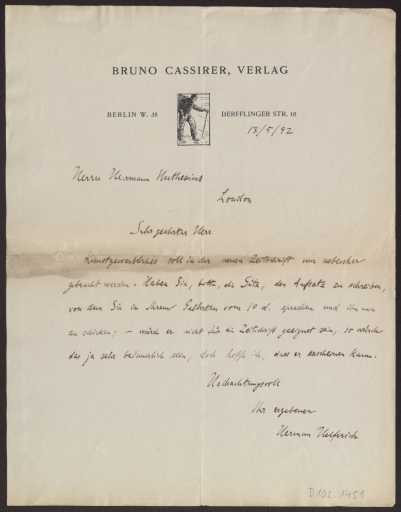 BRUNO CASSIRER, VERLAG
BERLIN W. 35 DERFFLINGER STR. 16
13/5/92
Herrn Hermann Muthesius
London
Sehr geehrter Herr
Kunstgewerbliches soll in der neuen Zeitschrift nur nebenher
gebracht werden. Haben Sie, bitte, die Güte, den Aufsatz zu schreiben,
von dem Sie in Ihrem Geehrten vom 10 d. sprechen und ihn mir
zu schicken; – würde er nicht für die Zeitschrift geeignet sein, so würde
das ja sehr bedauerlich sein, doch hoffe ich, dass er erscheinen kann.
Hochachtungsvoll
Ihr ergebener
Herman Helferich
D102-1451